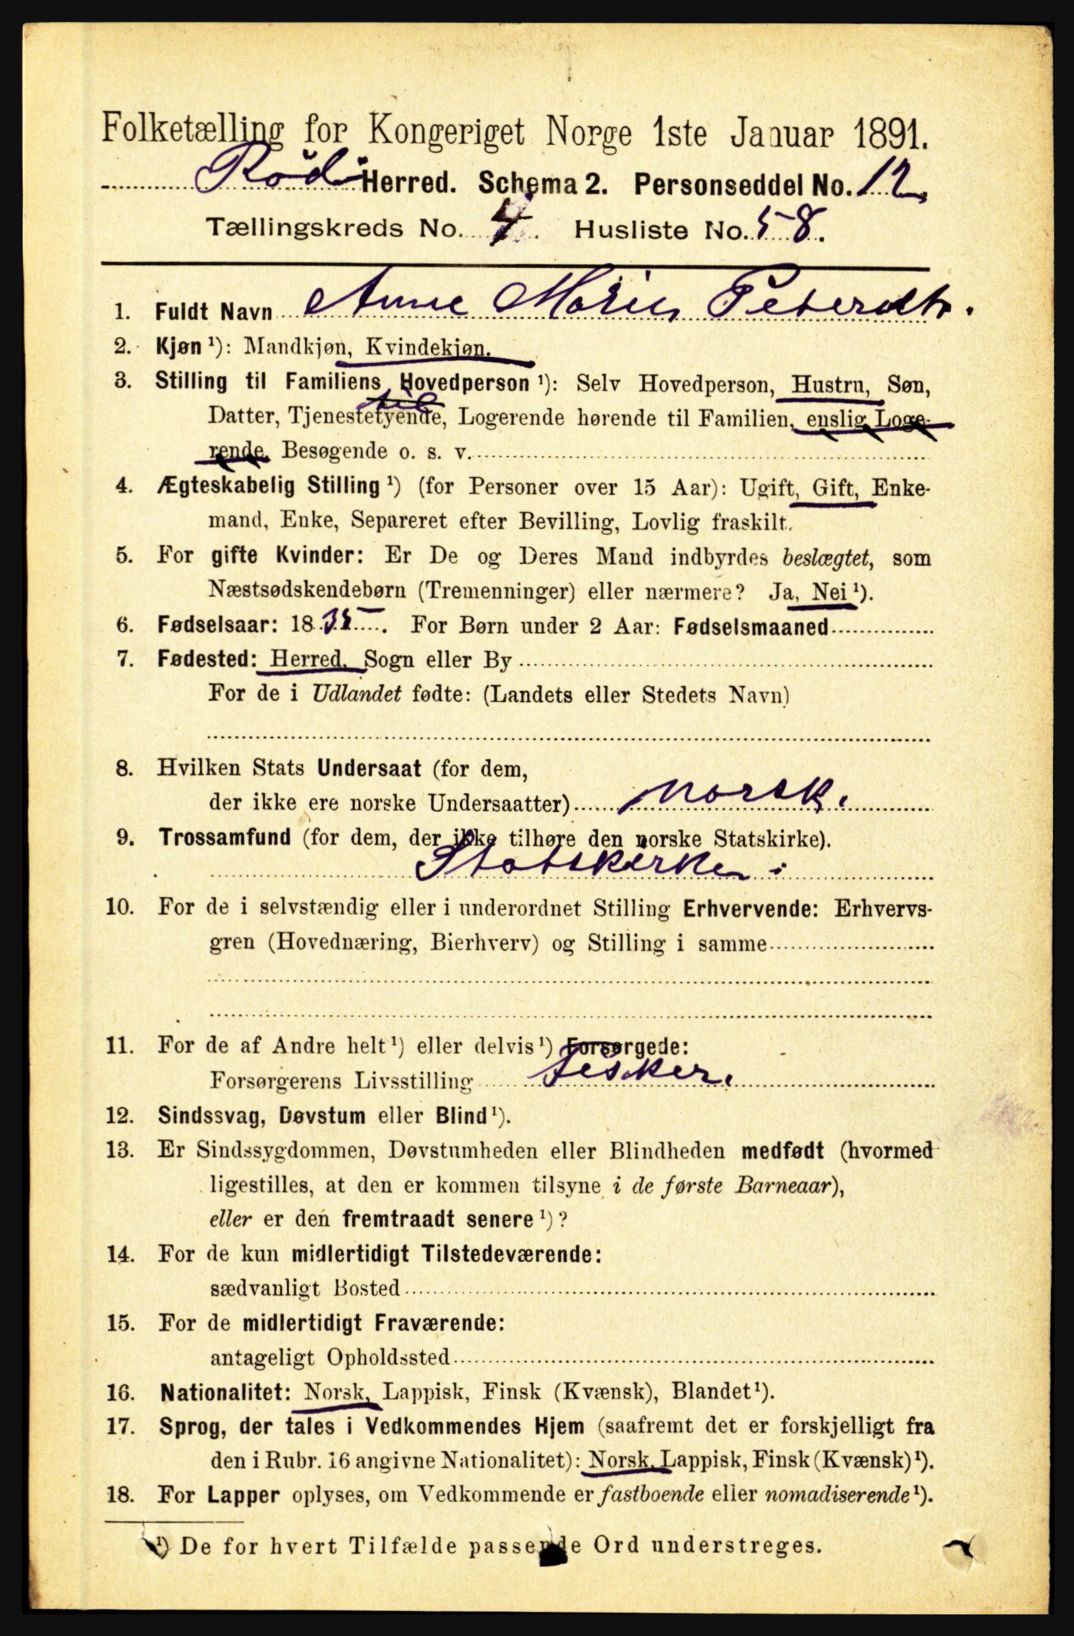 Folketælling for Kongeriget Norge 1ste Januar 1891.
Rødø Herred. Schema 2. Personseddel No. 12.
Tællingskreds No. 4. Husliste No. 58.
1. Fuldt Navn Anne Marie Petersdtr.
2. Kjøn ¹): Mandkjøn, Kvindekjøn.
3. Stilling til Familiens Hovedperson ¹): Selv Hovedperson, Hustru, Søn,
Datter, Tjenestetyende, Logerende hørende til Familien, enslig Loge-
rende, Besøgende o. s. v.
4. Ægteskabelig Stilling ¹) (for Personer over 15 Aar): Ugift, Gift, Enke-
mand, Enke, Separeret efter Bevilling, Lovlig fraskilt.
5. For gifte Kvinder: Er De og Deres Mand indbyrdes beslægtet, som
Næstsødskendebørn (Tremenninger) eller nærmere? Ja, Nei ¹).
6. Fødselsaar: 1835. For Børn under 2 Aar: Fødselsmaaned
7. Fødested: Herred, Sogn eller By
For de i Udlandet fødte: (Landets eller Stedets Navn)
8. Hvilken Stats Undersaat (for dem,
der ikke ere norske Undersaatter) norsk.
9. Trossamfund (for dem, der ikke tilhøre den norske Statskirke).
Statskirken
10. For de i selvstændig eller i underordnet Stilling Erhvervende: Erhvervs-
gren (Hovednæring, Bierhverv) og Stilling i samme
11. For de af Andre helt ¹) eller delvis ¹) Forsørgede:
Forsørgerens Livsstilling Fisker.
12. Sindssvag, Døvstum eller Blind ¹).
13. Er Sindssygdommen, Døvstumheden eller Blindheden medfødt (hvormed
ligestilles, at den er kommen tilsyne i de første Barneaar),
eller er den fremtraadt senere ¹)?
14. For de kun midlertidigt Tilstedeværende:
sædvanligt Bosted
15. For de midlertidigt Fraværende:
antageligt Opholdssted
16. Nationalitet: Norsk, Lappisk, Finsk (Kvænsk), Blandet ¹).
17. Sprog, der tales i Vedkommendes Hjem (saafremt det er forskjelligt fra
den i Rubr. 16 angivne Nationalitet): Norsk, Lappisk, Finsk (Kvænsk) ¹).
18. For Lapper oplyses, om Vedkommende er fastboende eller nomadiserende ¹).
¹) De for hvert Tilfælde passende Ord understreges.